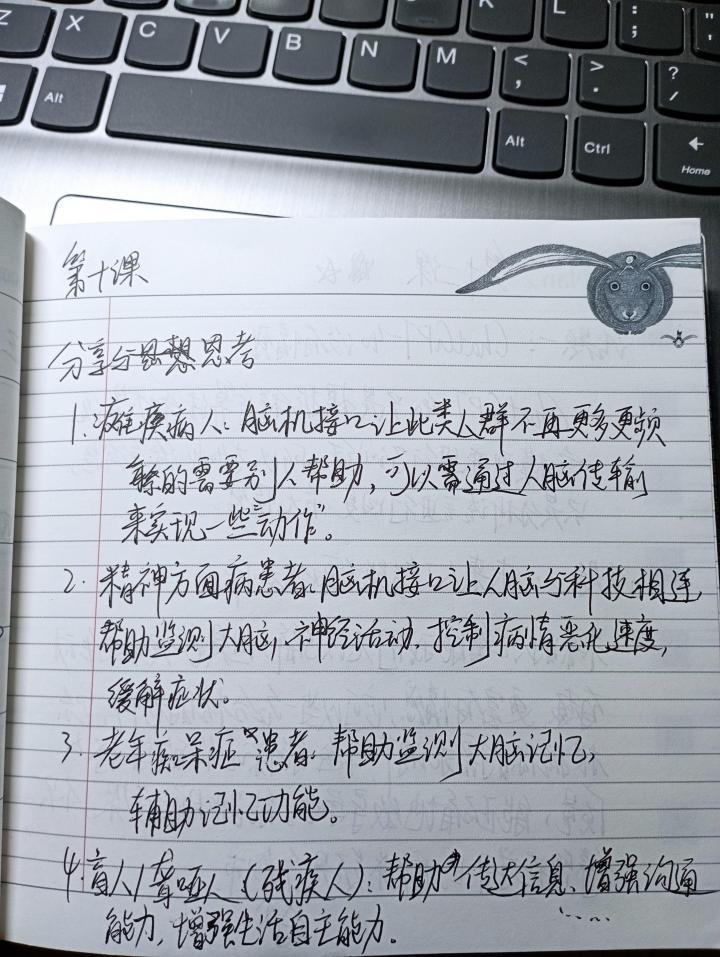 Z X C V B N M < , > . ? /
K L : ; " '
Alt Alt Ctrl ← Home
第十课
分享与思考
1. 瘫痪病人：脑机接口让此类人群不再更多更频
繁的需要别人帮助，可以需通过人脑传输
来实现一些"动作"。
2. 精神方面病患者：脑机接口让人脑与科技相连
帮助监测大脑，神经活动，控制病情恶化速度，
缓解症状。
3. 老年痴呆症患者：帮助监测大脑记忆，
辅助记忆功能。
4. 盲人/聋哑人（残疾人）：帮助传达信息、增强沟通
能力，增强生活自主能力。